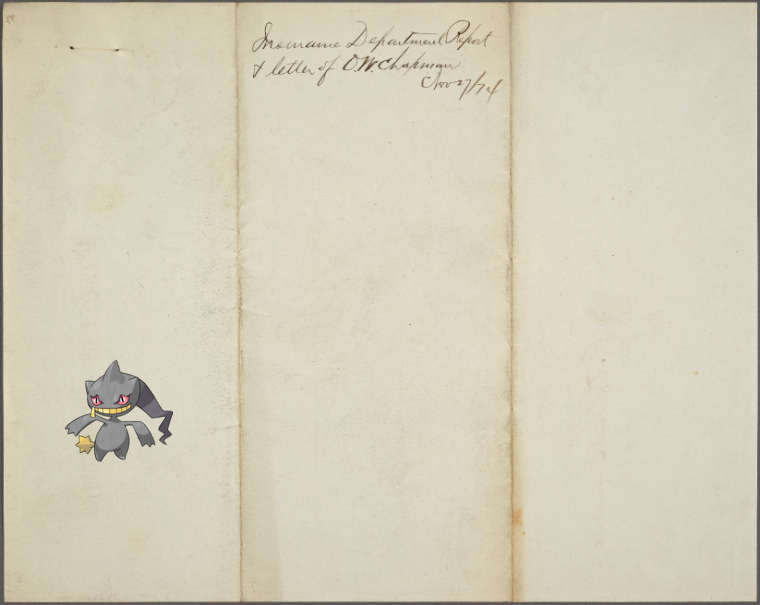 Insurance Department Report
& letter of O.W. Chapman
Nov 27/74